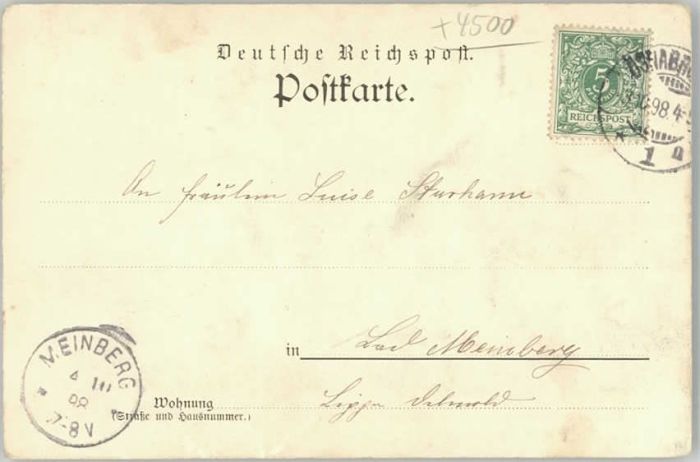 +4500
Deutsche Reichspost.
Postkarte.
5
REICHSPOST
98.4-5
1 a
An Fräulein Luise Sturhann
in Bad Meinberg
Lippe Detmold
Wohnung
(Straße und Hausnummer.)
MEINBERG
4 10
98
7-8V